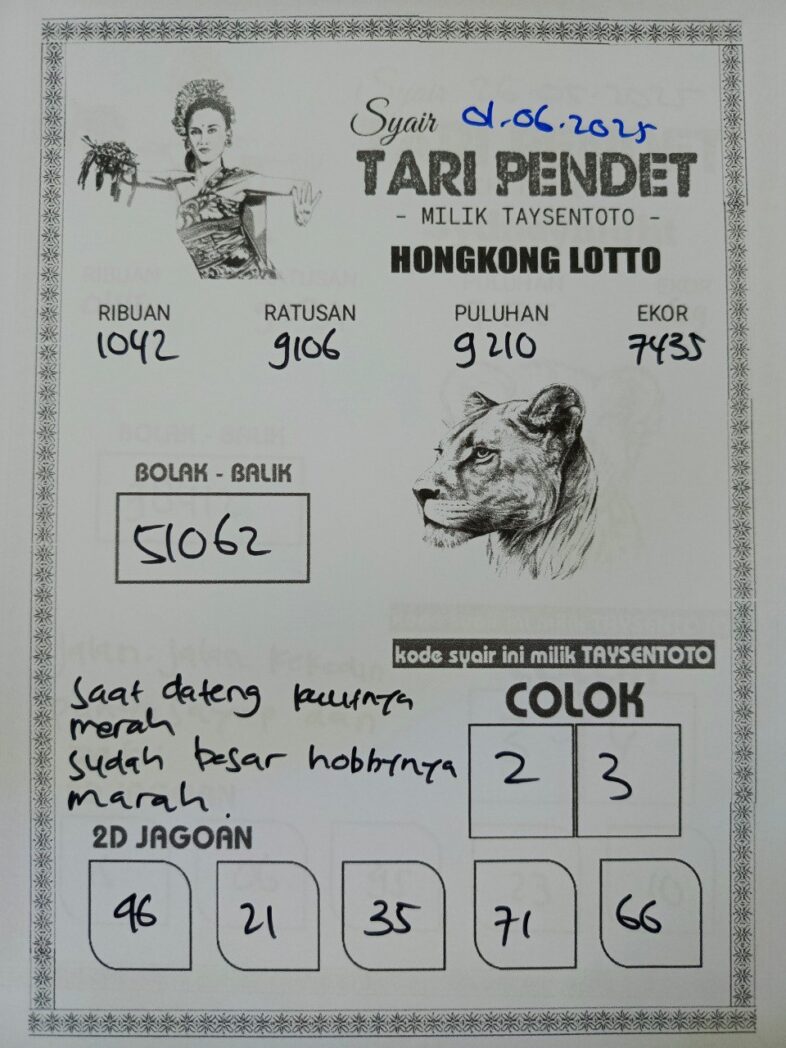 Syair 01.06.2025
TARI PENDET
- MILIK TAYSENTOTO -
HONGKONG LOTTO
RIBUAN RATUSAN PULUHAN EKOR
1042 9106 9210 7435
BOLAK - BALIK
51062
kode syair ini milik TAYSENTOTO
saat dateng
merah
sudah besar hobbynya
marah.
COLOK
2 3
2D JAGOAN
96 21 35 71 66